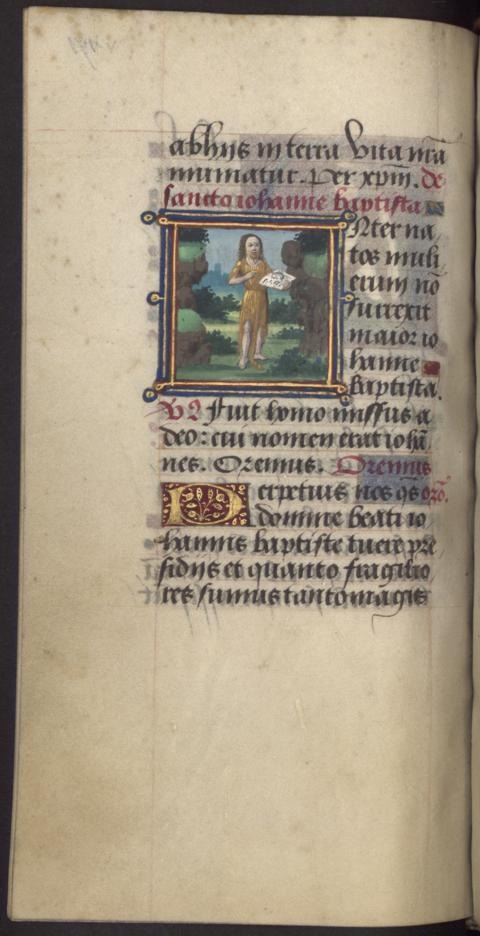 ab hijs in terra vita in a
nimi natur. Per xp̄m. de
sancto iohanne baptista
Nter na
tos muli
erum nō
surrexit
maior io
hanne
baptista.
Fuit homo missus a
deo: cui nomen erat iohā
nes. Oremus. Oremus
Derpetuis nos q̄s orō.
domine beati io
hannis baptiste tuere pre
sidijs et quanto fragilio
res sumus tanto magis